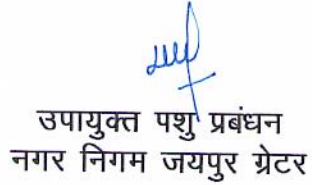 उपायुक्त पशु प्रबंधन
नगर निगम जयपुर ग्रेटर